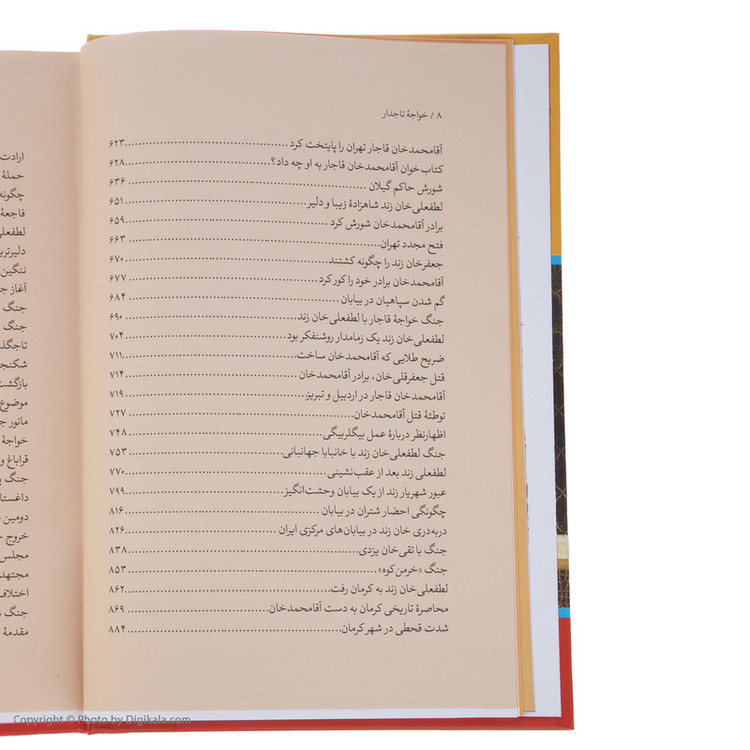 ۸ / خواجهٔ تاجدار
آقامحمدخان قاجار تهران را پایتخت کرد................................۶۲۳
کتاب‌خوان آقامحمدخان قاجار به او چه داد؟................................۶۲۸
شورش حاکم گیلان................................۶۳۶
لطفعلی‌خان زند شاهزادهٔ زیبا و دلیر................................۶۵۱
برادر آقامحمدخان شورش کرد................................۶۵۹
فتح مجدد تهران................................۶۶۳
جعفرخان زند را چگونه کشتند................................۶۷۰
آقامحمدخان برادر خود را کور کرد................................۶۷۷
گم شدن سپاهیان در بیابان................................۶۸۴
جنگ خواجهٔ قاجار با لطفعلی‌خان زند................................۶۹۰
لطفعلی‌خان زند یک زمامدار روشنفکر بود................................۷۰۴
ضریح طلایی که آقامحمدخان ساخت................................۷۱۱
قتل جعفرقلی‌خان، برادر آقامحمدخان................................۷۱۴
آقامحمدخان قاجار در اردبیل و تبریز................................۷۱۹
توطئهٔ قتل آقامحمدخان................................۷۲۷
اظهارنظر دربارهٔ عمل بیگلربیگی................................۷۴۸
جنگ لطفعلی‌خان زند با خانبابا جهانبانی................................۷۵۳
لطفعلی زند بعد از عقب‌نشینی................................۷۷۰
عبور شهریار زند از یک بیابان وحشت‌انگیز................................۷۹۹
چگونگی احضار شتران در بیابان................................۸۱۶
دربه‌دری خان زند در بیابان‌های مرکزی ایران................................۸۲۶
جنگ با تقی‌خان یزدی................................۸۳۸
جنگ «خرمن‌کوه»................................۸۵۳
لطفعلی‌خان زند به کرمان رفت................................۸۶۲
محاصرهٔ تاریخی کرمان به دست آقامحمدخان................................۸۶۹
شدت قحطی در شهر کرمان................................۸۸۴
ارادت
حملهٔ
چگونه
فاجعهٔ
لطفعلی
دلیرتری
ننگین
آغاز ج
جنگ
جنگ
تاجگذ
شکنجه
بازگشت
موضوع
مانور ج
خواجهٔ
قراباغ و
جنگ
داغستا
دومین
خروج
مجلس
مجتهد
اختلاف
جنگ
مقدمهٔ
Copyright © Photo by Digikala.com